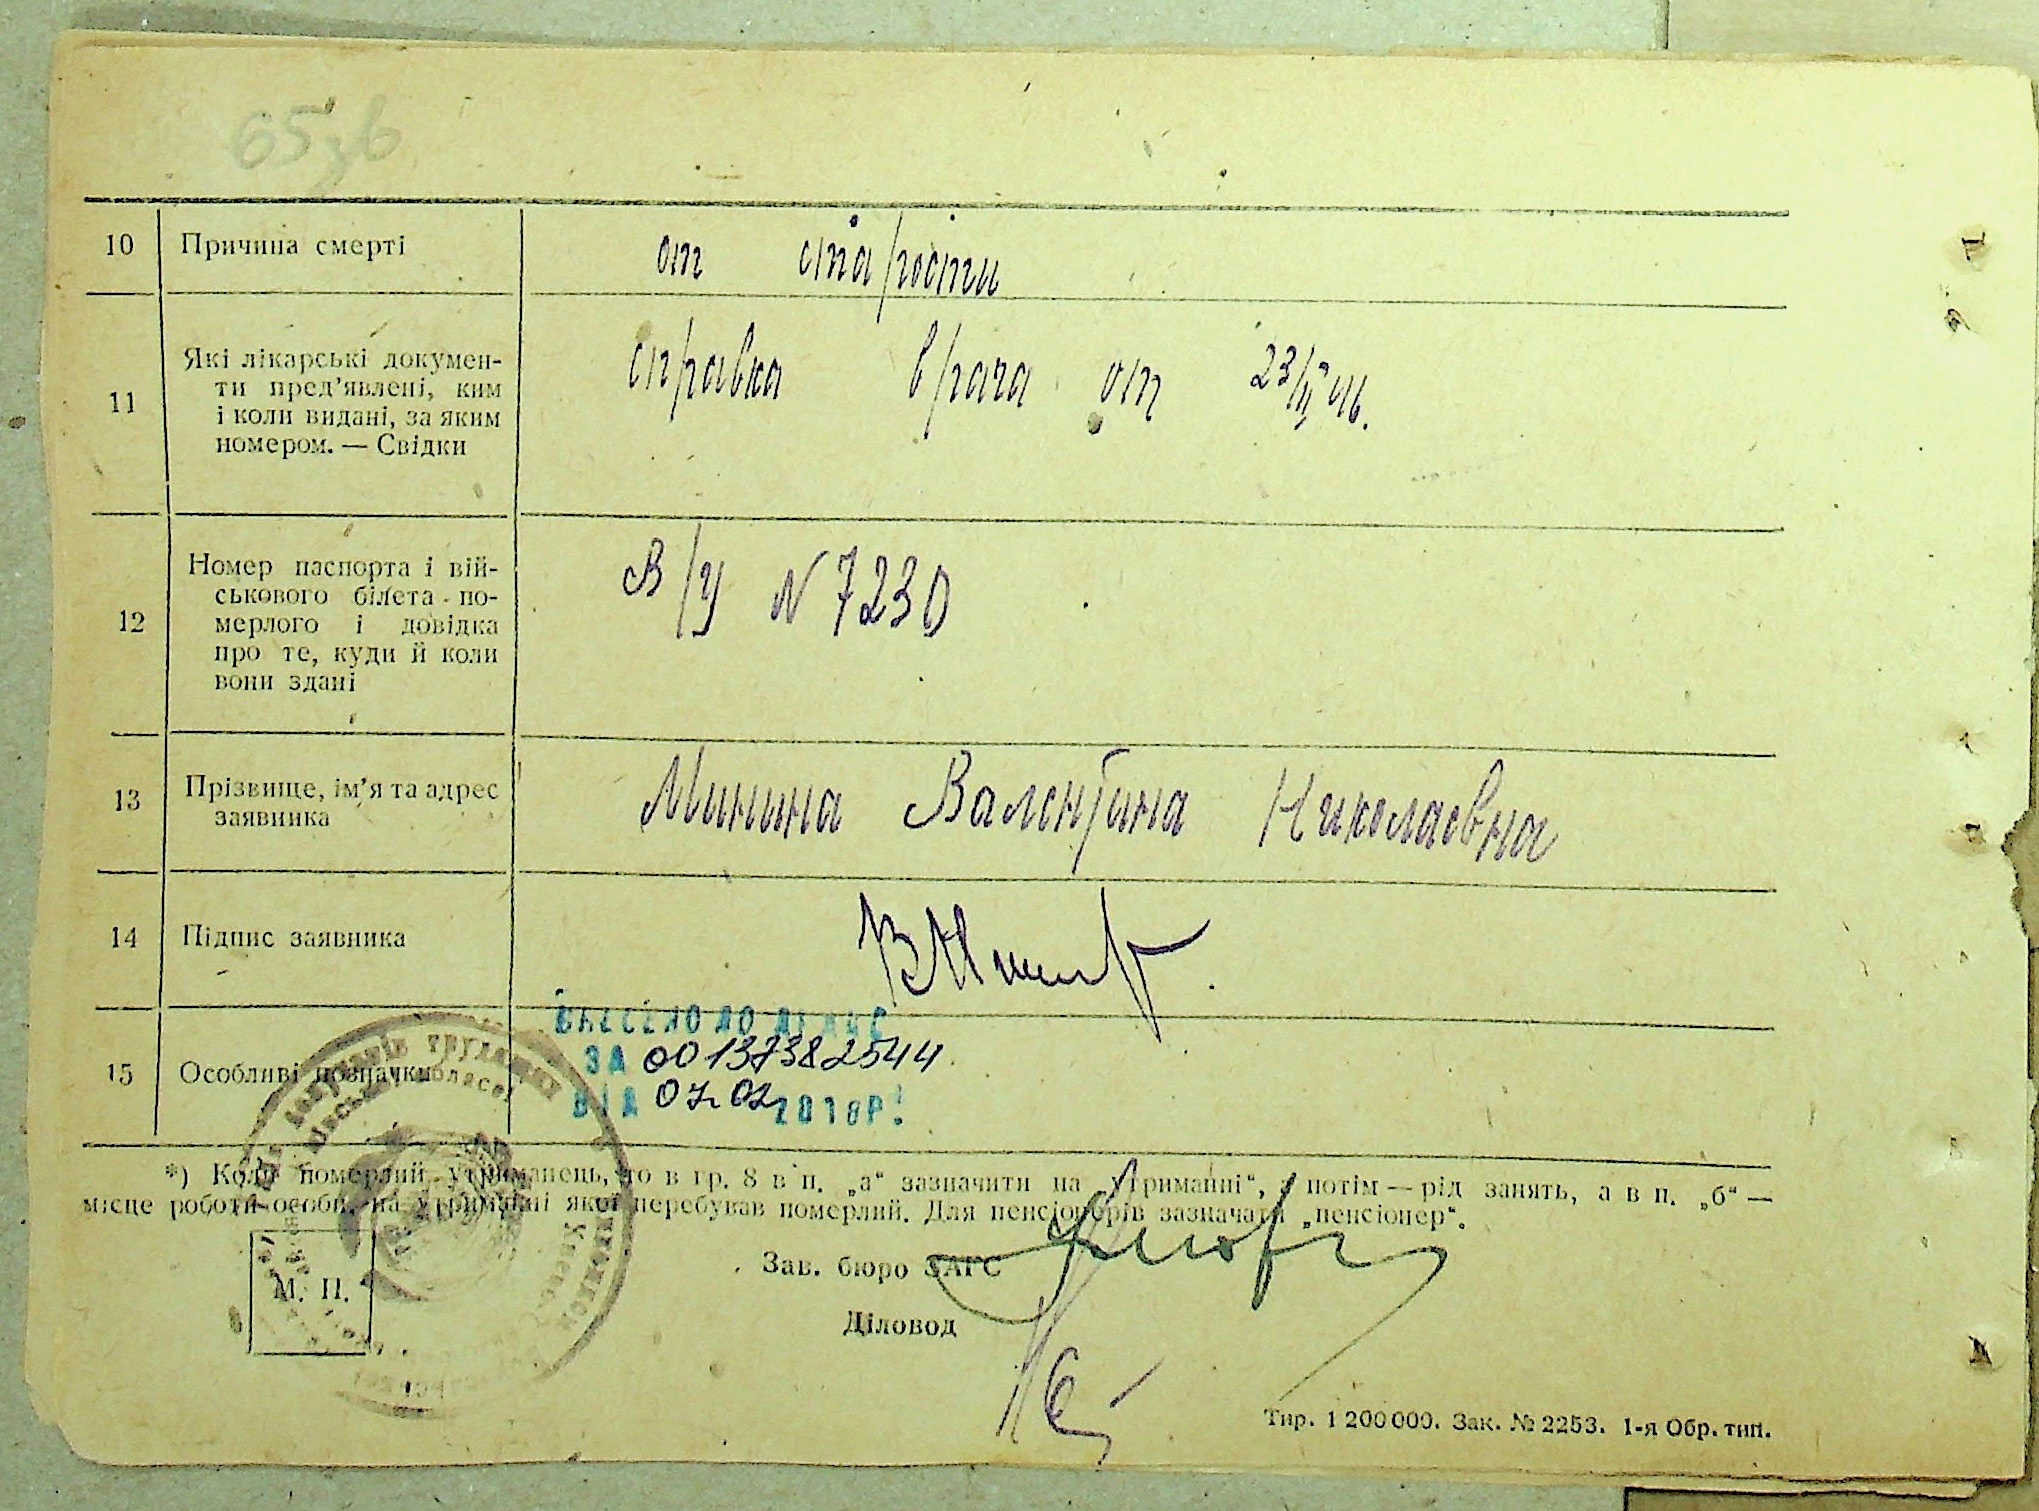 65зв
10 Причина смерті от старости
11 Які лікарські докумен-
ти пред'явлені, ким
і коли видані, за яким
номером. — Свідки
справка врача от 23/III 46.
12 Номер паспорта і вій-
ськового білета по-
мерлого і довідка
про те, куди й коли
вони здані
В/у N 7230
13 Прізвище, ім'я та адрес
заявника
Минина Валентина Николаевна
14 Підпис заявника
15 Особливі позначки
ВНЕСЕНО ДО ДРАЦС
ЗА 001373382544
ВІД 07.02 2018Р.
*) Коли померлий утриманець, то в гр. 8 в п. „а“ зазначити на „утриманні“, а потім — рід занять, а в п. „б“ —
місце роботи особи, на утриманні якої перебував померлий. Для пенсіонерів зазначати „пенсіонер“.
М. П.
Зав. бюро ЗАГС
Діловод
Тир. 1 200 000. Зак. № 2253. 1-я Обр. тип.